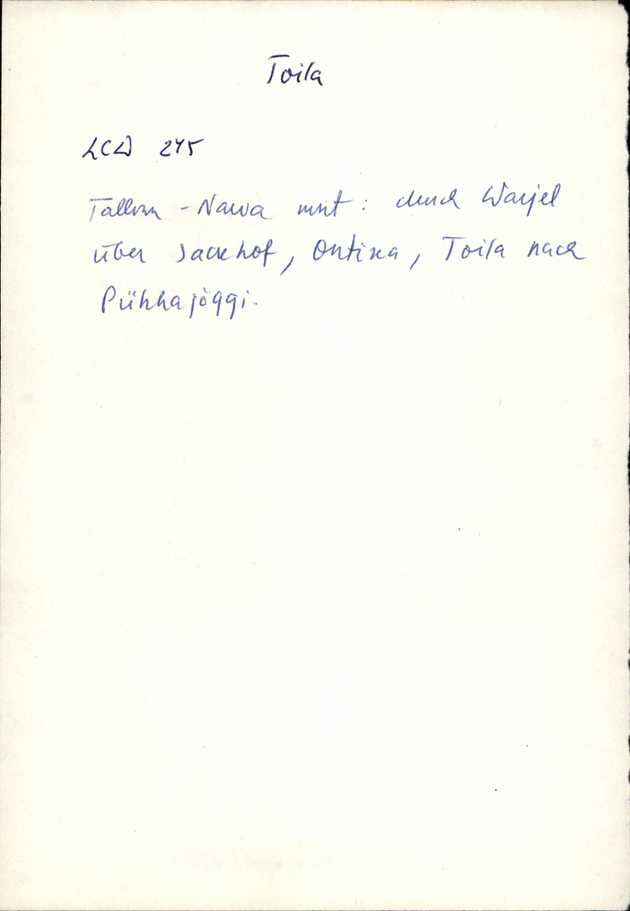 Toila
LCD 245
Tallinn - Narva mnt: durch Warjel
über Sackhof, Ontika, Toila nach
Pühhajöggi.